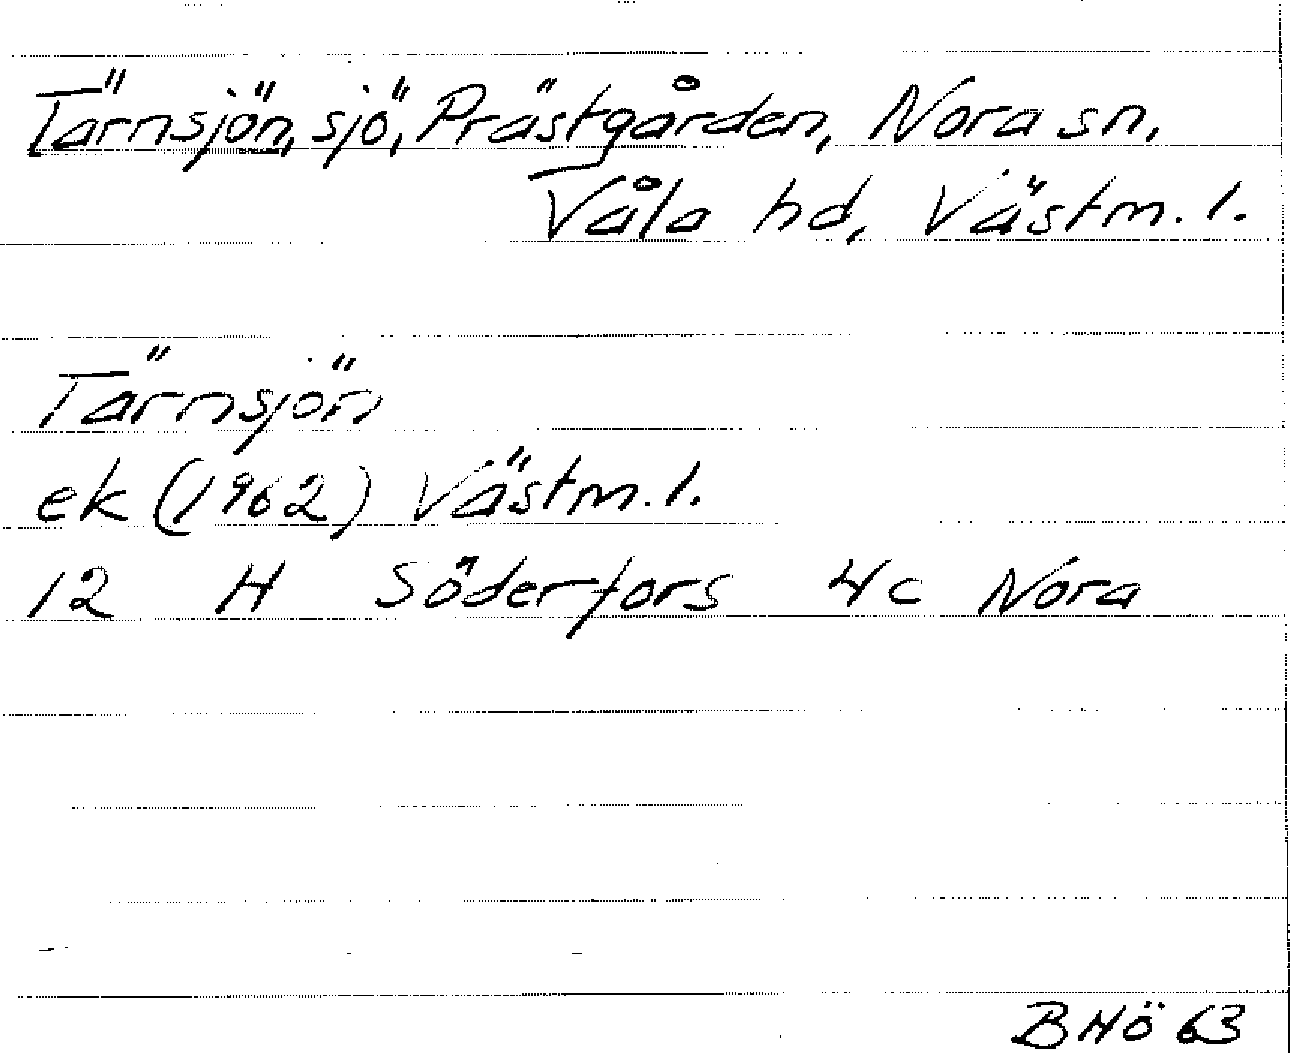 Tärnsjön, sjö, Prästgården, Nora sn,
Våla hd, Västm. l.
Tärnsjön
ek (1962) Västm. l.
12 H Söderfors 4c Nora
BHö 63